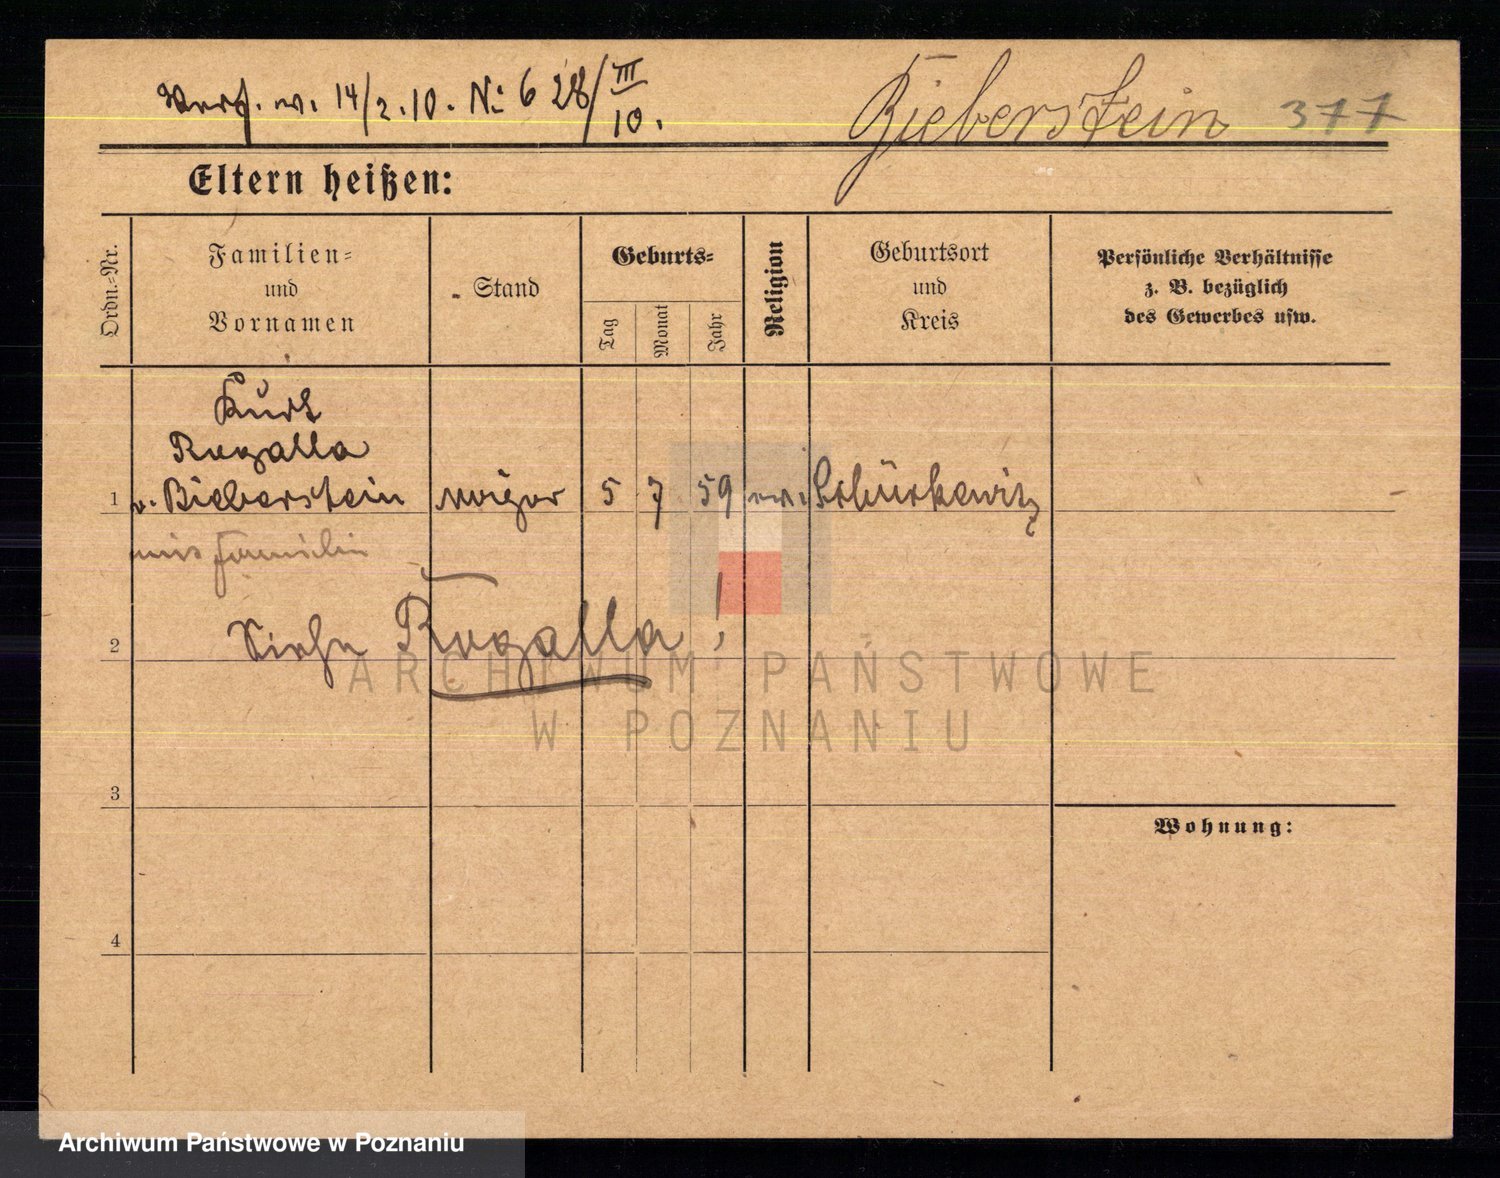 Verf. v. 14/2.10. No 6 28/III 10.
Bieberstein 377
Eltern heißen:
Ordn.-Nr.
Familien-
und
Vornamen
Stand
Geburts-
Tag
Monat
Jahr
Religion
Geburtsort
und
Kreis
Persönliche Verhältnisse
z. B. bezüglich
des Gewerbes usw.
Kurt
Rogalla
1 v. Bieberstein Major 5 7 59 ev. Schürkewitz
Siehe Rogalla!
2
ARCHIWUM PAŃSTWOWE
W POZNANIU
3
Wohnung:
4
Archiwum Państwowe w Poznaniu